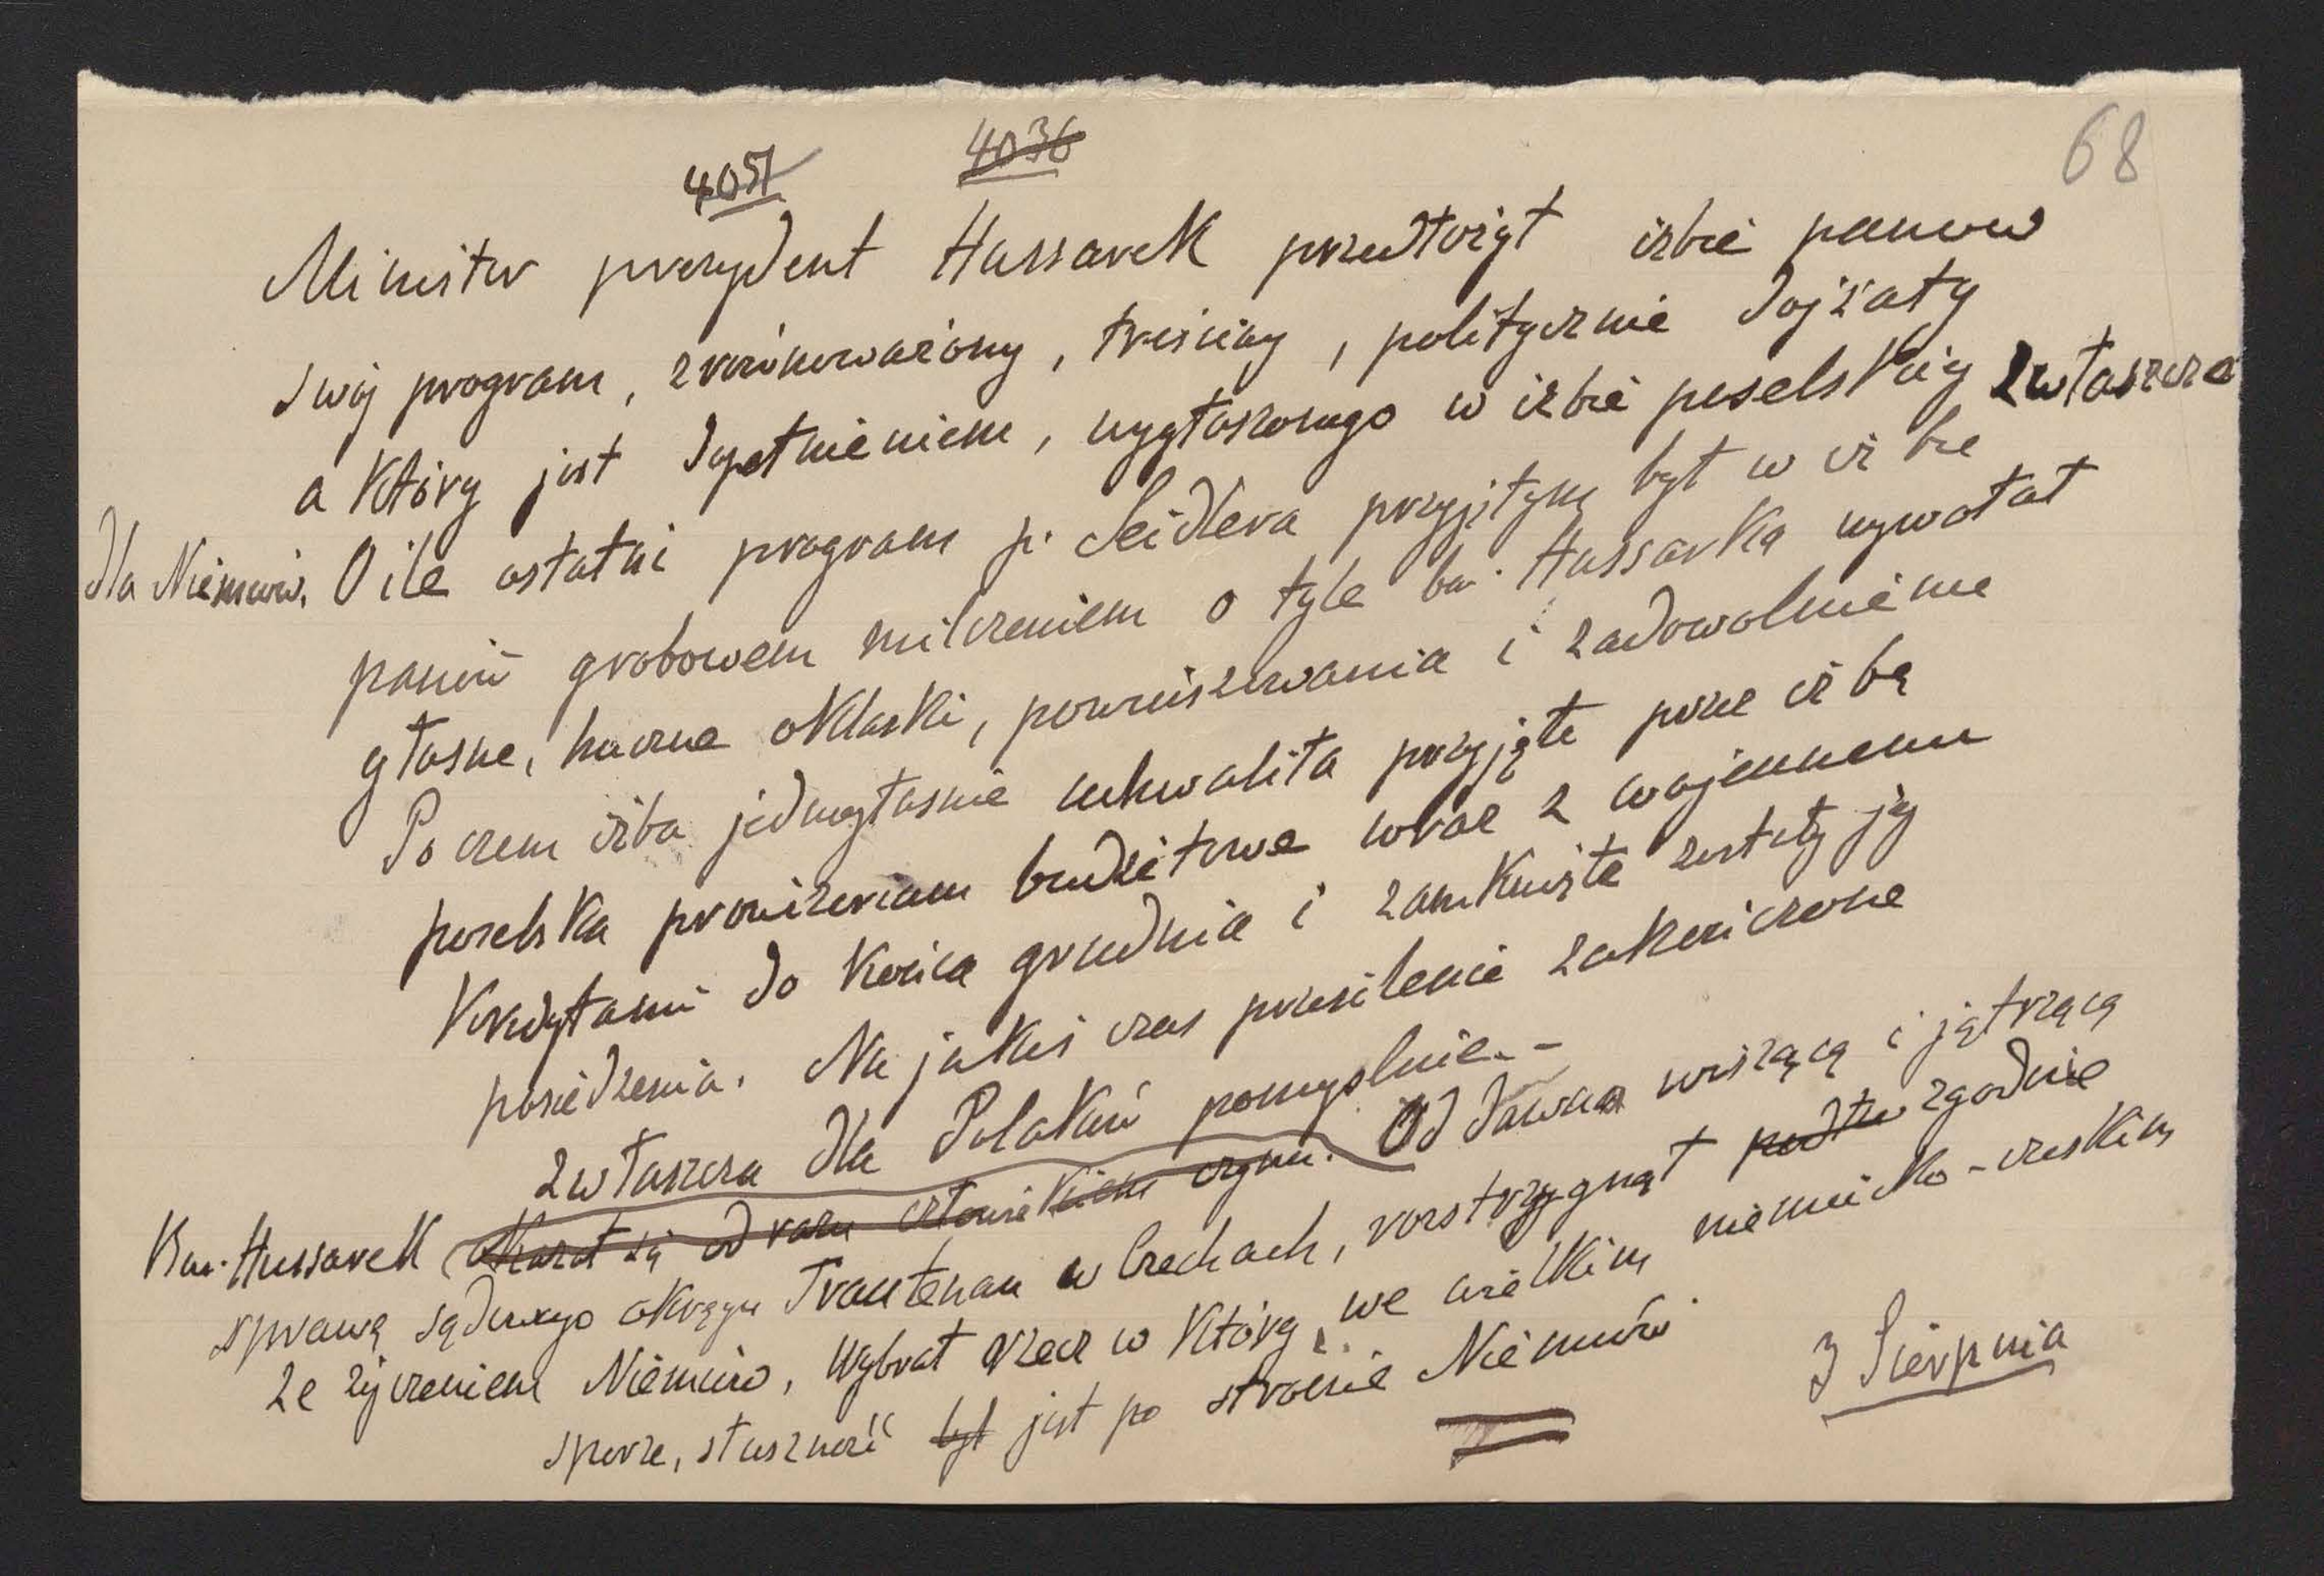 68
4051 4036
Minister prezydent Hussarek przedłożył izbie panów
swój program, zrównoważony, treściwy, politycznie dojźały
a który jest dopełnieniem, wygłoszonego w izbie poselskiej zwłaszcza
dla Niemców. O ile ostatni program p. Seidlera przyjętym był w izbie
panów grobowem milczeniem o tyle bar. Hussarka wywołał
głośne, huczne oklaski, powinszowania i zadowolnienie
Po czem izba jednogłośnie uchwaliła przyjęte prze izbę
poselska prowizorium budżetowe wraz z wojennemi
Kredytami do końca grudnia i zamknięte zostały jej
posiedzenia. Na jakiś czas przesilenie zakończone
zwłaszcza dla Polaków pomyślnie. -
Bar. Hussarek okazał się od razu człowiekiem czynu. Od dawna wiszącą i jątrzącą
sprawę sądowego okręgu Trautenau w Czechach, rozstrzygnął zgodnie
ze życzeniem Niemców, wybrał rzecz w której, we wielkim niemiecko-czeskim
sporze, słuszność był jest po stronie Niemców
3 Sierpnia